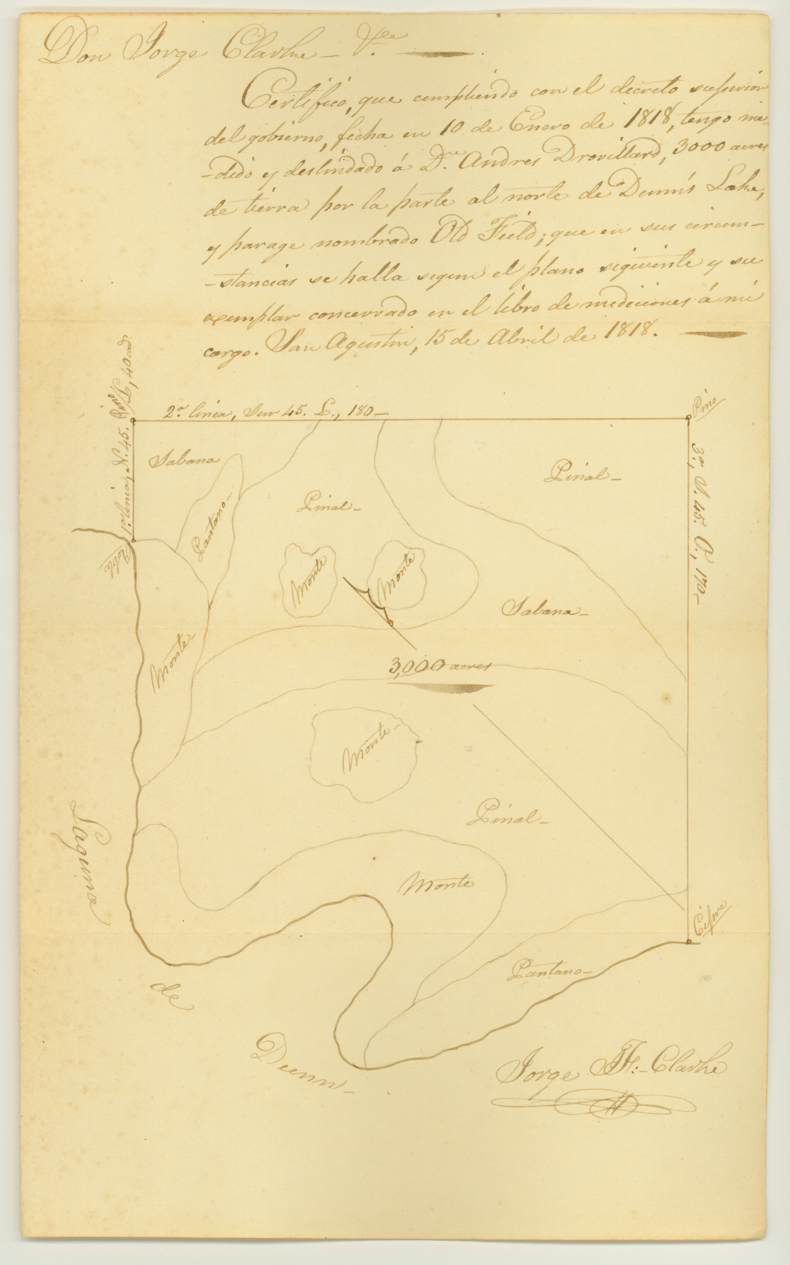 Don Jorge Clarke – &ea.
Certifico, que cumpliendo con el decreto superior
del gobierno, fecha en 10 de Enero de 1818, tengo me-
-dido y deslindado á Dn. Andres Drovillard, 3000 acres
de tierra por la parte al norte de Dunn's Lake,
y parage nombrado Old Field; que en sus circum-
-stancias se halla segun el plano siguiente y su
exemplar concervado en el libro de mediciones á mi
cargo. San Agustin, 15 de Abril de 1818.
1ª linea, N. 45.
2ª linea, Sur 45. E., 180–
Pino
3ª, S. 45. O., 170–
Sabana
Pantano–
Pinal–
Pinal–
Monte
Monte
Sabana–
Monte
3,000 acres
Monte–
Pinal–
Monte
Cipre
Pantano–
Laguna
de
Dunn–
Jorge J. F.:– Clarke